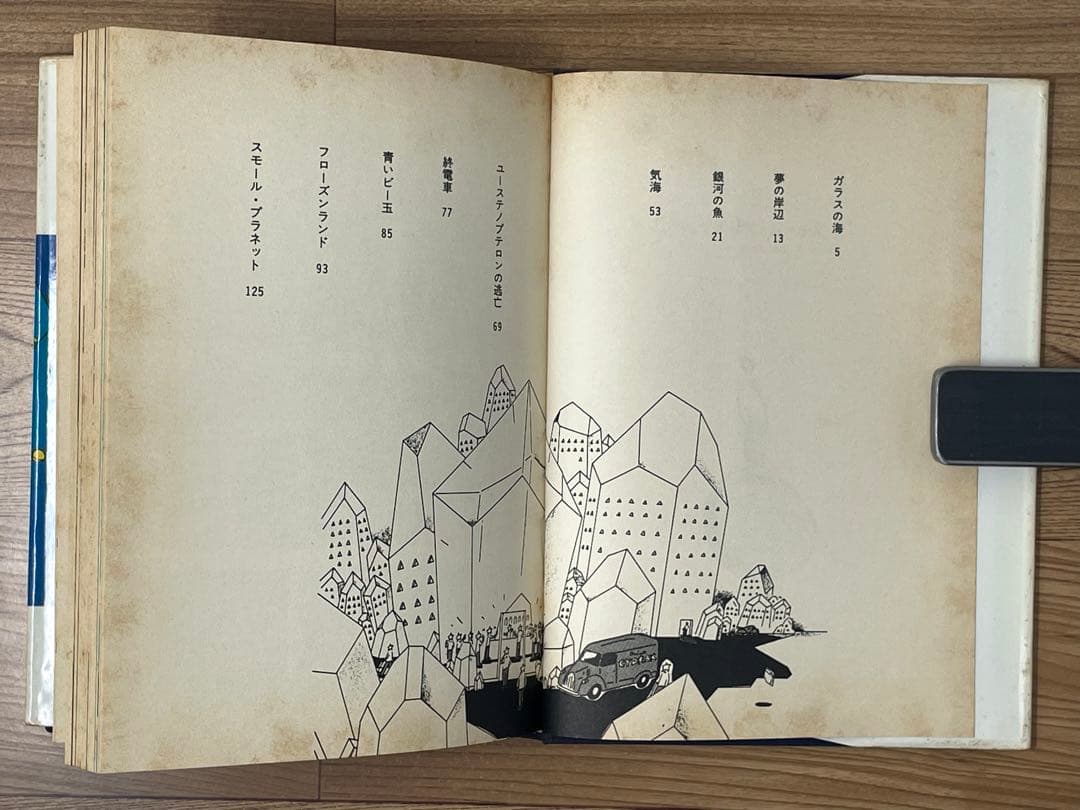 ガラスの海 5
夢の岸辺 13
銀河の魚 21
気海 53
ユーステノプテロンの逃亡 69
終電車 77
青いビー玉 85
フローズンランド 93
スモール・プラネット 125